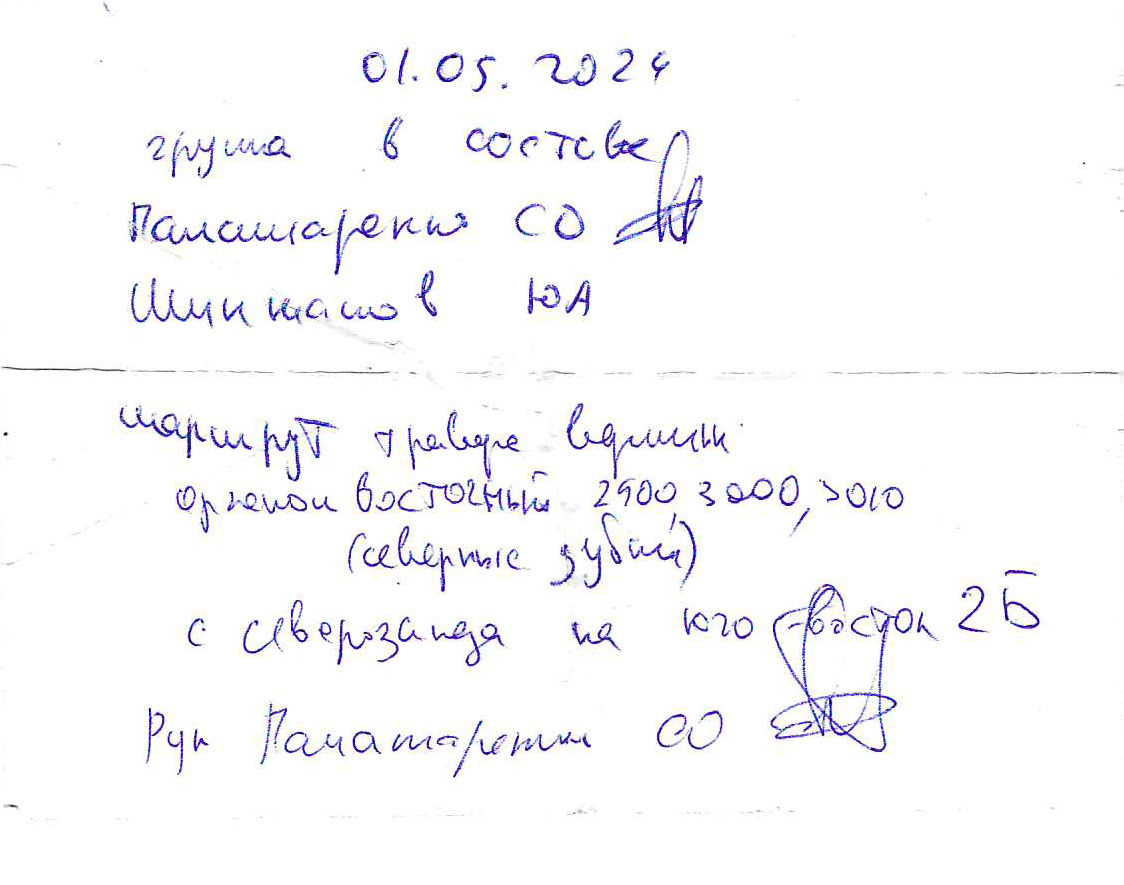 01.05.2024
группа в составе
Паламаренко СО
Шинкмасов ЮА
маршрут траверс вершин
Восточный 2900, 3000, 3010
(северные зубья)
с северозапада на юго-восток 2Б
Рук Паламаренко СО